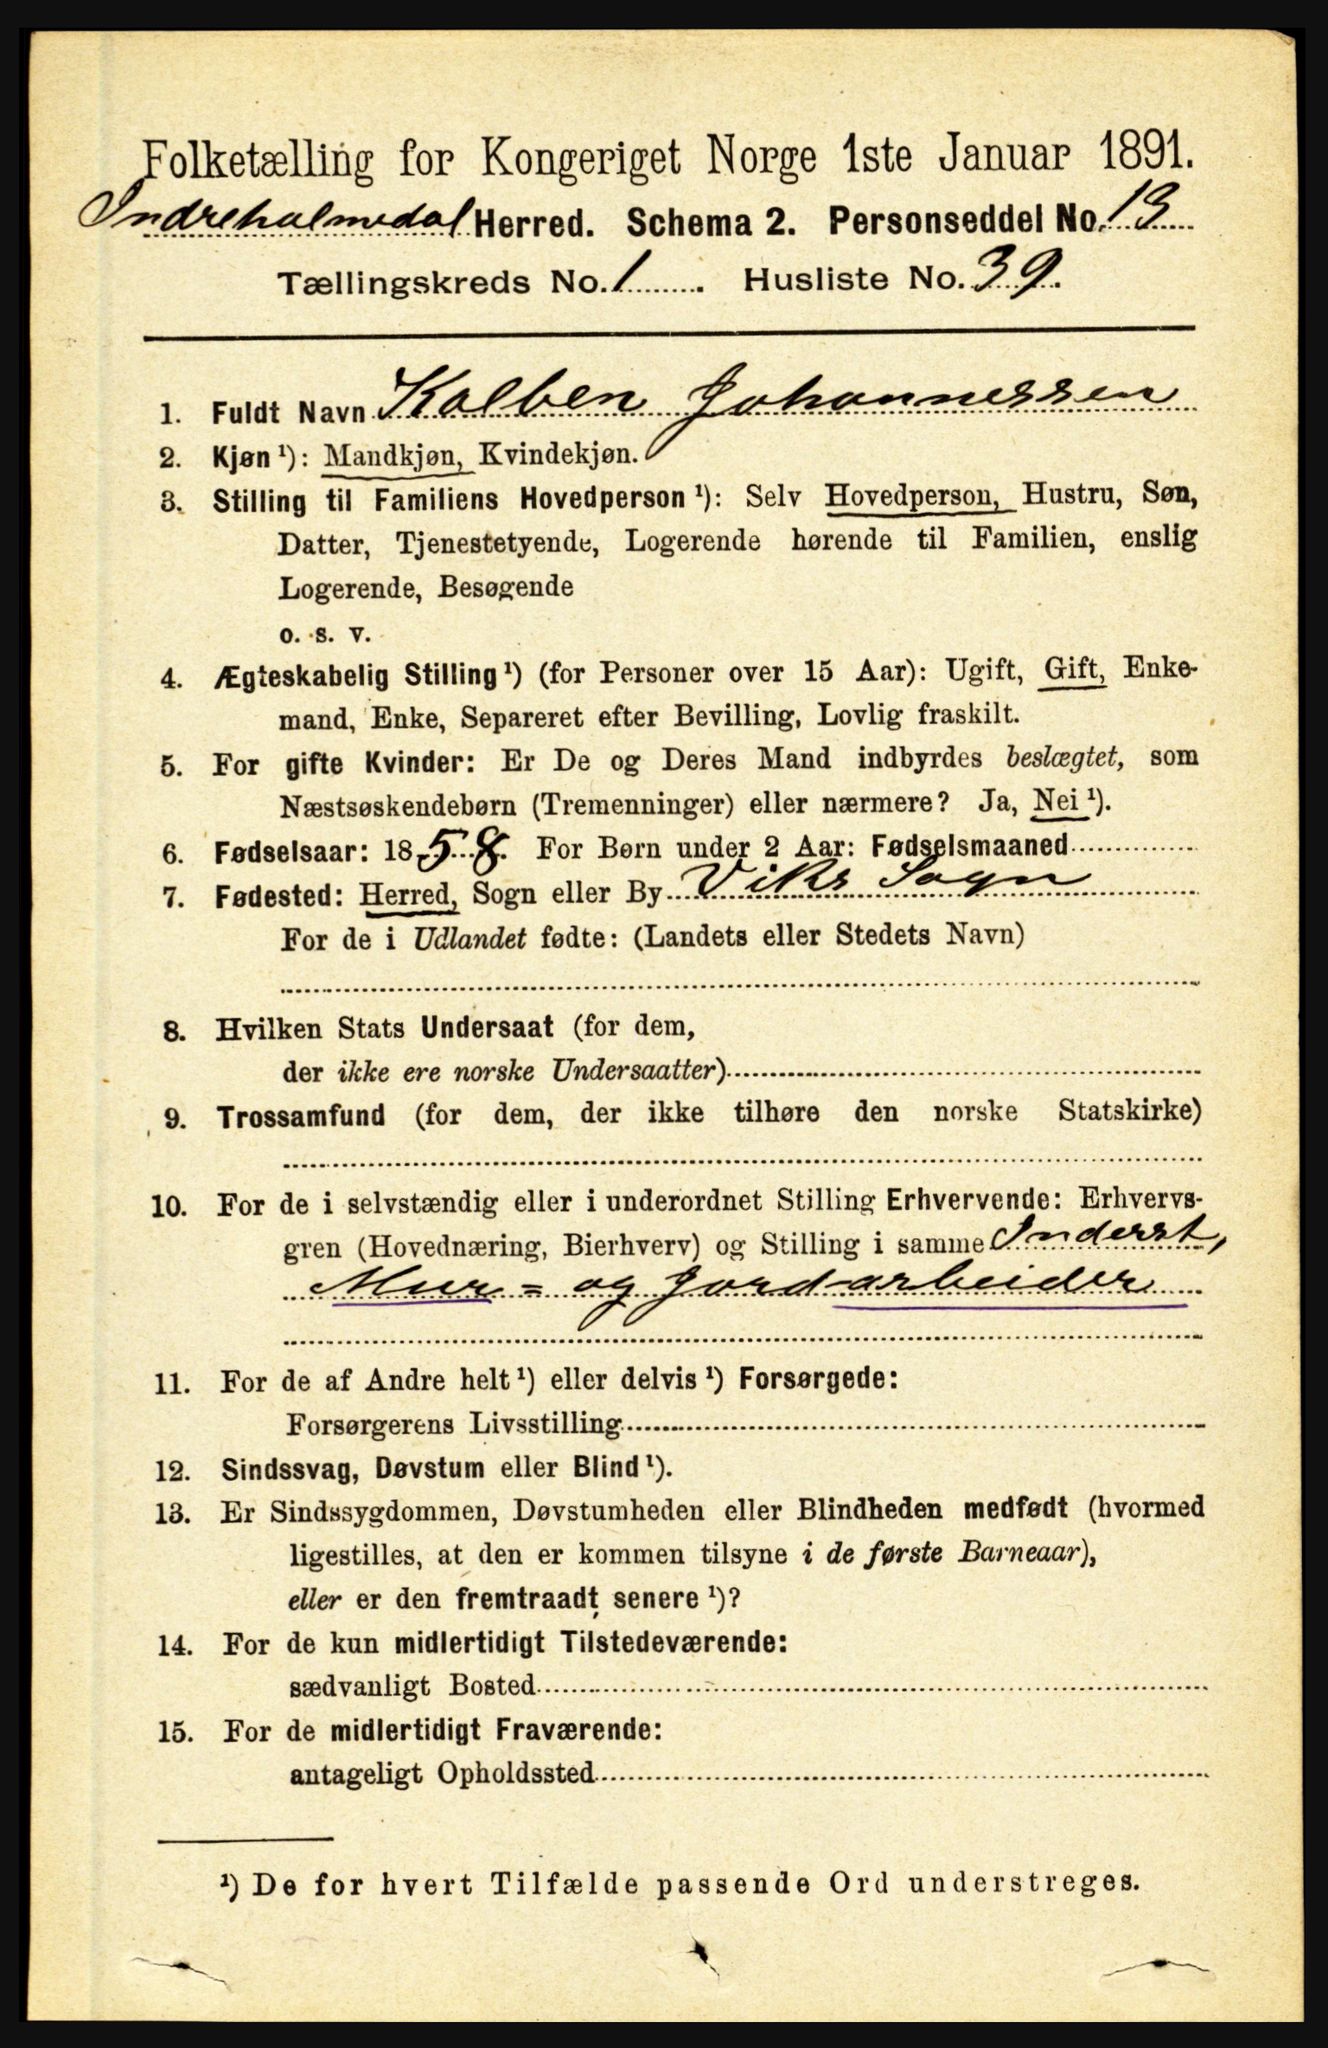 Folketælling for Kongeriget Norge 1ste Januar 1891.
Indreholmedal Herred. Schema 2. Personseddel No. 13
Tællingskreds No. 1. Husliste No. 39.
1. Fuldt Navn Kolben Johannessen
2. Kjøn ¹): Mandkjøn, Kvindekjøn.
3. Stilling til Familiens Hovedperson ¹): Selv Hovedperson, Hustru, Søn,
Datter, Tjenestetyende, Logerende hørende til Familien, enslig
Logerende, Besøgende
o. s. v.
4. Ægteskabelig Stilling ¹) (for Personer over 15 Aar): Ugift, Gift, Enke-
mand, Enke, Separeret efter Bevilling, Lovlig fraskilt.
5. For gifte Kvinder: Er De og Deres Mand indbyrdes beslægtet, som
Næstsøskendebørn (Tremenninger) eller nærmere? Ja, Nei ¹).
6. Fødselsaar: 1858. For Børn under 2 Aar: Fødselsmaaned
7. Fødested: Herred, Sogn eller By Viks Sogn
For de i Udlandet fødte: (Landets eller Stedets Navn)
8. Hvilken Stats Undersaat (for dem,
der ikke ere norske Undersaatter)
9. Trossamfund (for dem, der ikke tilhøre den norske Statskirke)
10. For de i selvstændig eller i underordnet Stilling Erhvervende: Erhvervs-
gren (Hovednæring, Bierhverv) og Stilling i samme Inderst,
Mur- og Jordarbeider
11. For de af Andre helt ¹) eller delvis ¹) Forsørgede:
Forsørgerens Livsstilling
12. Sindssvag, Døvstum eller Blind ¹).
13. Er Sindssygdommen, Døvstumheden eller Blindheden medfødt (hvormed
ligestilles, at den er kommen tilsyne i de første Barneaar),
eller er den fremtraadt senere ¹)?
14. For de kun midlertidigt Tilstedeværende:
sædvanligt Bosted
15. For de midlertidigt Fraværende:
antageligt Opholdssted
¹) De for hvert Tilfælde passende Ord understreges.